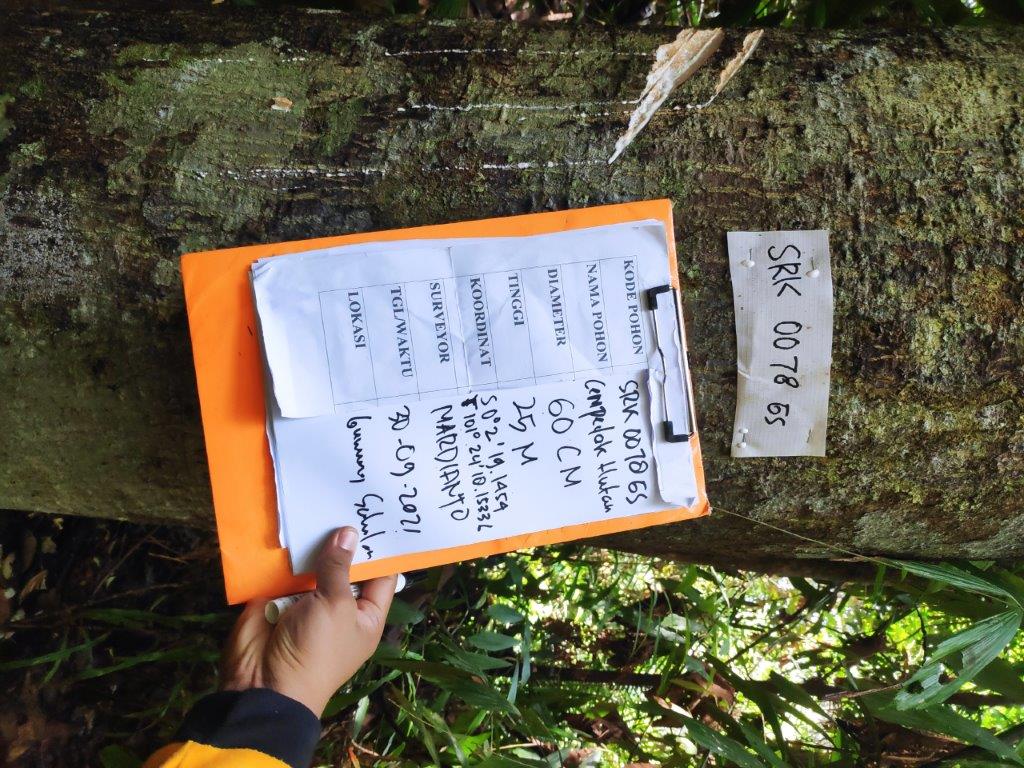 KODE POHON SRK 0078 ES
NAMA POHON Cempelok Hutan
DIAMETER 60 CM
TINGGI 25 M
KOORDINAT S 0° 2' 19.1454
101° 24' 18.1533
SURVEYOR MARDIANTO
TGL/WAKTU 30-09-2021
LOKASI Gunung
SRK 0078 ES